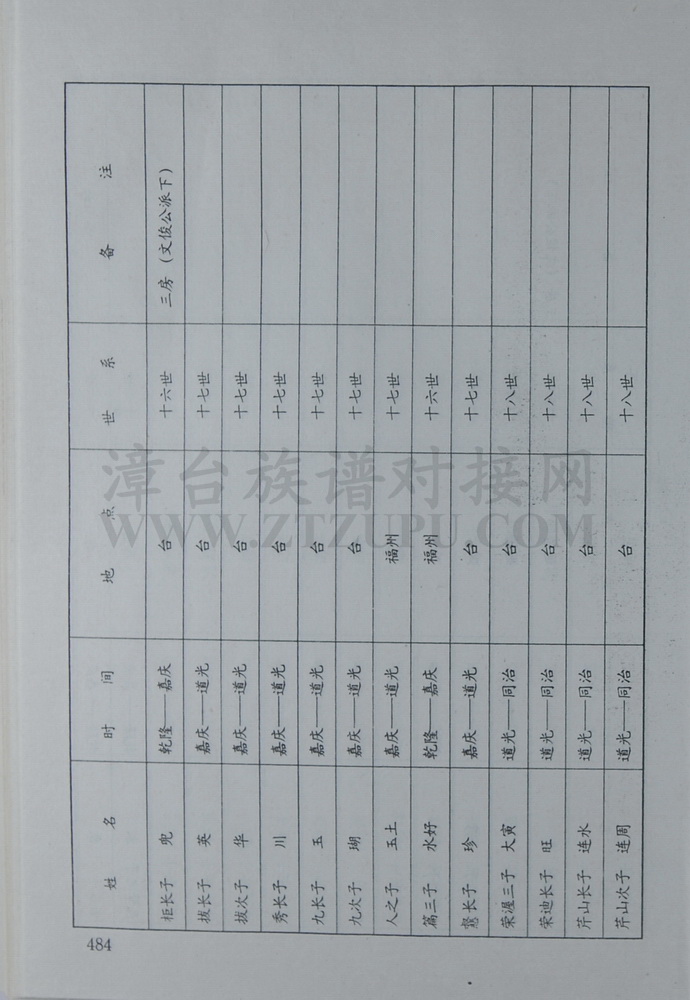 姓名 时间 地点 世系 备注
柜长子 兜 乾隆——嘉庆 台 十六世 三房（文俊公派下）
拔长子 英 嘉庆——道光 台 十七世
拔次子 华 嘉庆——道光 台 十七世
秀长子 川 嘉庆——道光 台 十七世
九长子 玉 嘉庆——道光 台 十七世
九次子 瑚 嘉庆——道光 台 十七世
人之子 玉土 嘉庆——道光 福州 十七世
篇三子 水好 乾隆——嘉庆 福州 十六世
长子 珍 嘉庆——道光 台 十七世
荣渥三子 大寅 道光——同治 台 十八世
荣迪长子 旺 道光——同治 台 十八世
芹山长子 连水 道光——同治 台 十八世
芹山次子 连周 道光——同治 台 十八世
484
漳台族谱对接网
WWW.ZTZUPU.COM